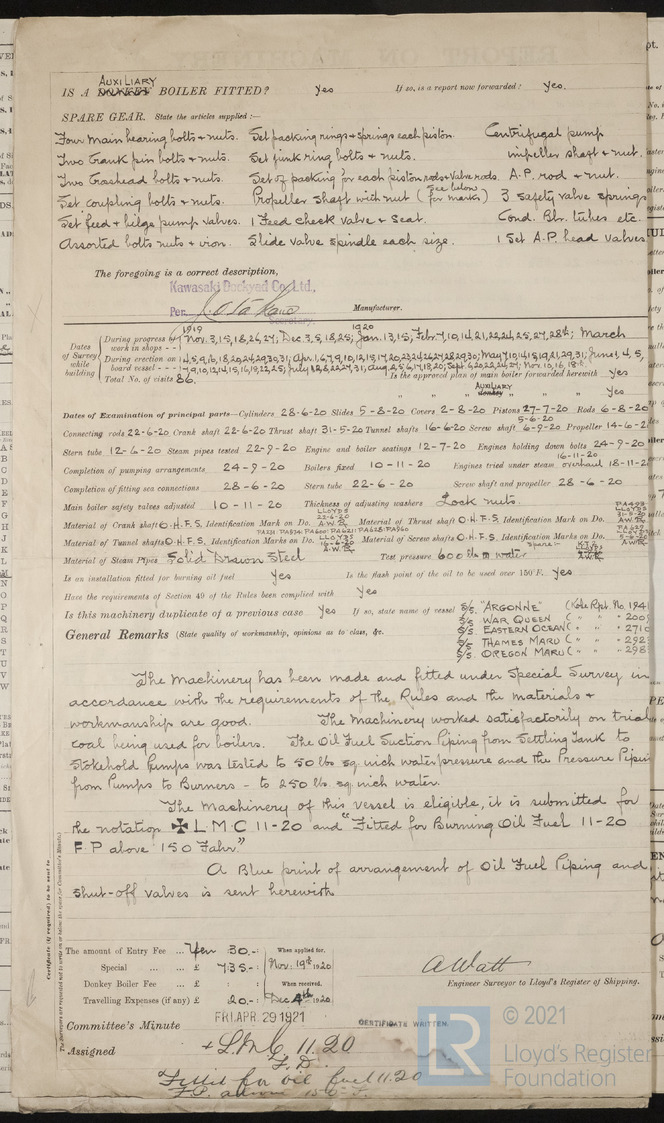 AUXILIARY
IS A DONKEY BOILER FITTED? Yes If so, is a report now forwarded? Yes.
SPARE GEAR. State the articles supplied :—
Four main bearing bolts & nuts. Set packing rings & springs each piston. Centrifugal pump
Two Crank pin bolts & nuts. Set junk ring bolts & nuts. impeller shaft & nut.
Two Crosshead bolts & nuts. Set of packing for each piston rods & valve rods. A.P. rod & nut.
Set coupling bolts & nuts. Propeller shaft with nut (see below for marks) 3 safety valve springs
Set feed & bilge pump valves. 1 Feed check valve & seat. Cond. Blr. tubes etc.
Assorted bolts nuts & iron. Slide valve spindle each size. 1 Set A.P. head valves
The foregoing is a correct description,
Kawasaki Dockyard Co., Ltd.,
Per Manufacturer.
Secretary.
1919 1920
Dates of Survey while building
During progress of work in shops - - Nov. 3, 15, 18, 26, 27; Dec. 3, 5, 18, 25; Jan. 13, 15; Feb. 7, 10, 14, 21, 22, 24, 25, 27, 28th; March
During erection on board vessel - - -
Total No. of visits 86. Is the approved plan of main boiler forwarded herewith Yes
AUXILIARY
" " " donkey " " " Yes
Dates of Examination of principal parts—Cylinders 28-6-20 Slides 5-8-20 Covers 2-8-20 Pistons 27-7-20 Rods 6-8-20
5-6-20
Connecting rods 22-6-20 Crank shaft 22-6-20 Thrust shaft 31-5-20 Tunnel shafts 16-6-20 Screw shaft 6-9-20 Propeller 14-6-2
Stern tube 12-6-20 Steam pipes tested 22-9-20 Engine and boiler seatings 12-7-20 Engines holding down bolts 24-9-20
16-11-20
Completion of pumping arrangements 24-9-20 Boilers fixed 10-11-20 Engines tried under steam overhaul 18-11-2
Completion of fitting sea connections 28-6-20 Stern tube 22-6-20 Screw shaft and propeller 28-6-20
Main boiler safety valves adjusted 10-11-20 Thickness of adjusting washers Lock nuts.
Material of Crank shaft O.H.F.S. Identification Mark on Do. Material of Thrust shaft O.H.F.S. Identification Mark on Do.
Material of Tunnel shafts O.H.F.S. Identification Marks on Do. Material of Screw shafts O.H.F.S. Identification Marks on Do.
Material of Steam Pipes Solid Drawn Steel Test pressure 600 lbs water
Is an installation fitted for burning oil fuel Yes Is the flash point of the oil to be used over 150°F. Yes
Have the requirements of Section 49 of the Rules been complied with Yes
Is this machinery duplicate of a previous case Yes If so, state name of vessel S/S. "ARGONNE" (Kobe Rpt. No. 194
S/S. WAR QUEEN ( " " 200
S/S. EASTERN OCEAN ( " " 271
S/S. THAMES MARU ( " " 292
S/S. OREGON MARU ( " " 298
General Remarks (State quality of workmanship, opinions as to class, &c.
The Machinery has been made and fitted under Special Survey in
accordance with the requirements of the Rules and the materials &
workmanship are good. The Machinery worked satisfactorily on trial
coal being used for boilers. The Oil Fuel Suction Piping from Settling Tank to
Stokehold Pumps was tested to 50 lbs sq. inch water pressure and the Pressure Pipin
from Pumps to Burners - to 250 lbs sq. inch water.
The Machinery of this vessel is eligible, it is submitted for
the notation ✠ L M C 11-20 and "Fitted for Burning Oil Fuel 11-20
F.P above 150° Fahr"
A Blue print of arrangement of Oil Fuel Piping and
shut-off valves is sent herewith
Certificate (if required) to be sent to
The amount of Entry Fee ... Yen 30.-: When applied for,
Special ... ... £ 735.-: Nov: 19th 1920
Donkey Boiler Fee ... £ : : When received,
Travelling Expenses (if any) £ 20.-: Dec 4th 1920
A Watt
Engineer Surveyor to Lloyd's Register of Shipping.
Committee's Minute FRI. APR. 29 1921
CERTIFICATE WRITTEN.
Assigned + L.M.C. 11.20
F.D.
Fitted for oil fuel 11.20
F.P. above 150° F.
LR
© 2021
Lloyd's Register
Foundation